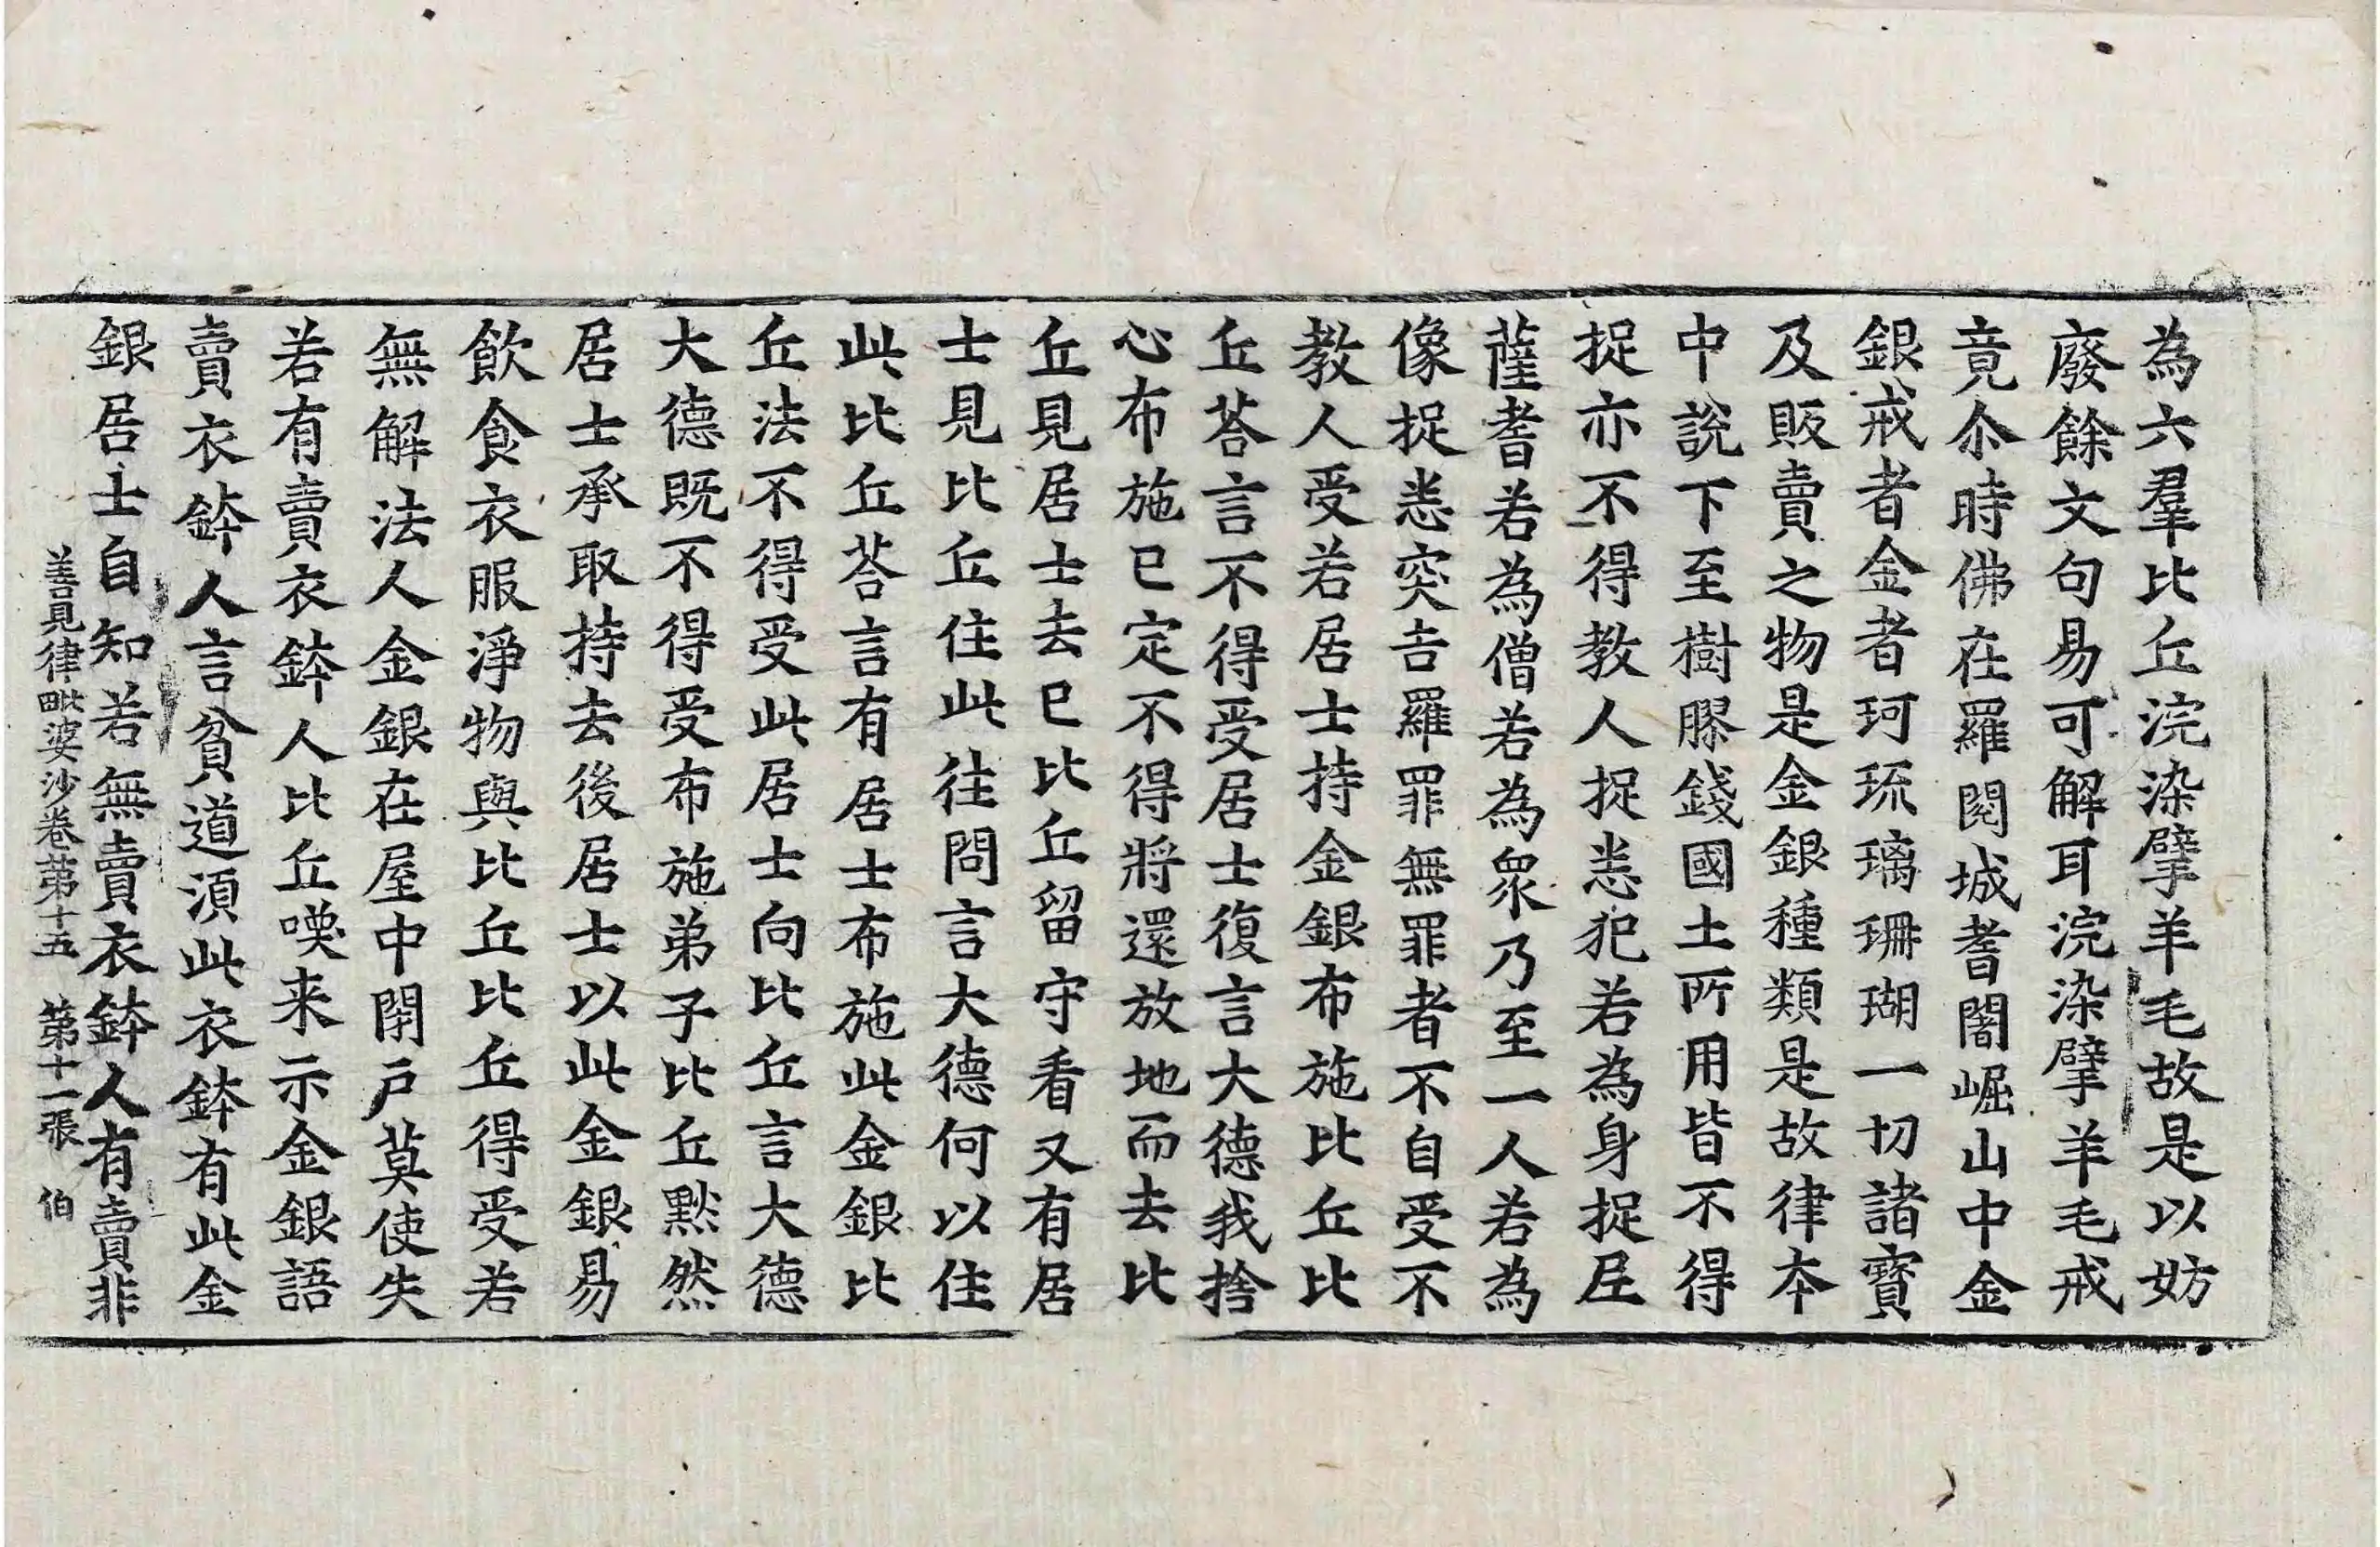 為六羣比丘浣染擘羊毛故是以妨
廢餘文句易可解耳浣染擘羊毛戒
竟尒時佛在羅閱城耆闍崛山中金
銀戒者金者珂琉璃珊瑚一切諸寳
及販賣之物是金銀種類是故律本
中說下至樹膠錢國土所用皆不得
捉亦不得教人捉悉犯若為身捉尼
薩耆若為僧若為衆乃至一人若為
像捉悉突吉羅罪無罪者不自受不
教人受若居士持金銀布施比丘比
丘荅言不得受居士復言大德我捨
心布施已定不得將還放地而去比
丘見居士去已比丘留守看又有居
士見比丘住此往問言大德何以住
此比丘荅言有居士布施此金銀比
丘法不得受此居士向比丘言大德
大德既不得受布施弟子比丘黙然
居士承取持去後居士以此金銀易
飲食衣服淨物與比丘比丘得受若
無解法人金銀在屋中閇戸莫使失
若有賣衣鉢人比丘唤来示金銀語
賣衣鉢人言貧道湏此衣鉢有此金
銀居士自知若無賣衣鉢人有賣非
善見律毗婆沙卷苐十五　苐十一張　伯